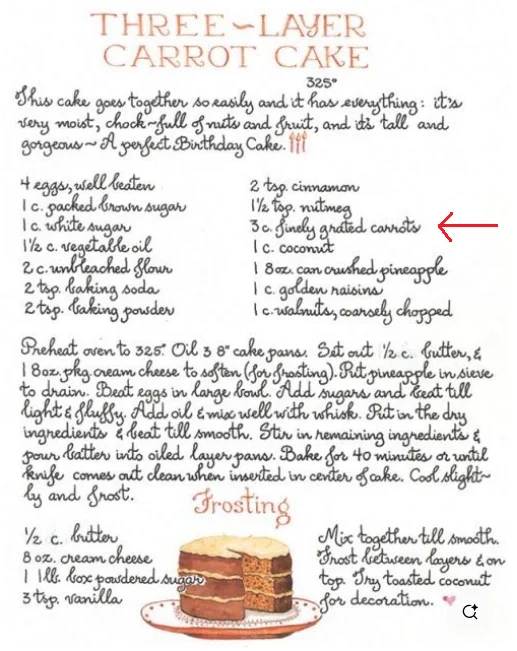 THREE~LAYER
CARROT CAKE
325°
This cake goes together so easily and it has everything: it's
very moist, chock~full of nuts and fruit, and it's tall and
gorgeous~ A perfect Birthday Cake.
4 eggs, well beaten
1 c. packed brown sugar
1 c. white sugar
1½ c. vegetable oil
2 c. unbleached flour
2 tsp. baking soda
2 tsp. baking powder
2 tsp. cinnamon
1½ tsp. nutmeg
3 c. finely grated carrots
1 c. coconut
1 8oz. can crushed pineapple
1 c. golden raisins
1 c. walnuts, coarsely chopped
Preheat oven to 325°. Oil 3 8" cake pans. Set out ½ c. butter, &
1 8oz. pkg. cream cheese to soften (for frosting). Put pineapple in sieve
to drain. Beat eggs in large bowl. Add sugars and beat till
light & fluffy. Add oil & mix well with whisk. Put in the dry
ingredients & beat till smooth. Stir in remaining ingredients &
pour batter into oiled layer pans. Bake for 40 minutes or until
knife comes out clean when inserted in center of cake. Cool slight~
ly and frost.
Frosting
½ c. butter
8 oz. cream cheese
1 1 lb. box powdered sugar
3 tsp. vanilla
Mix together till smooth.
Frost between layers & on
top. Try toasted coconut
for decoration.